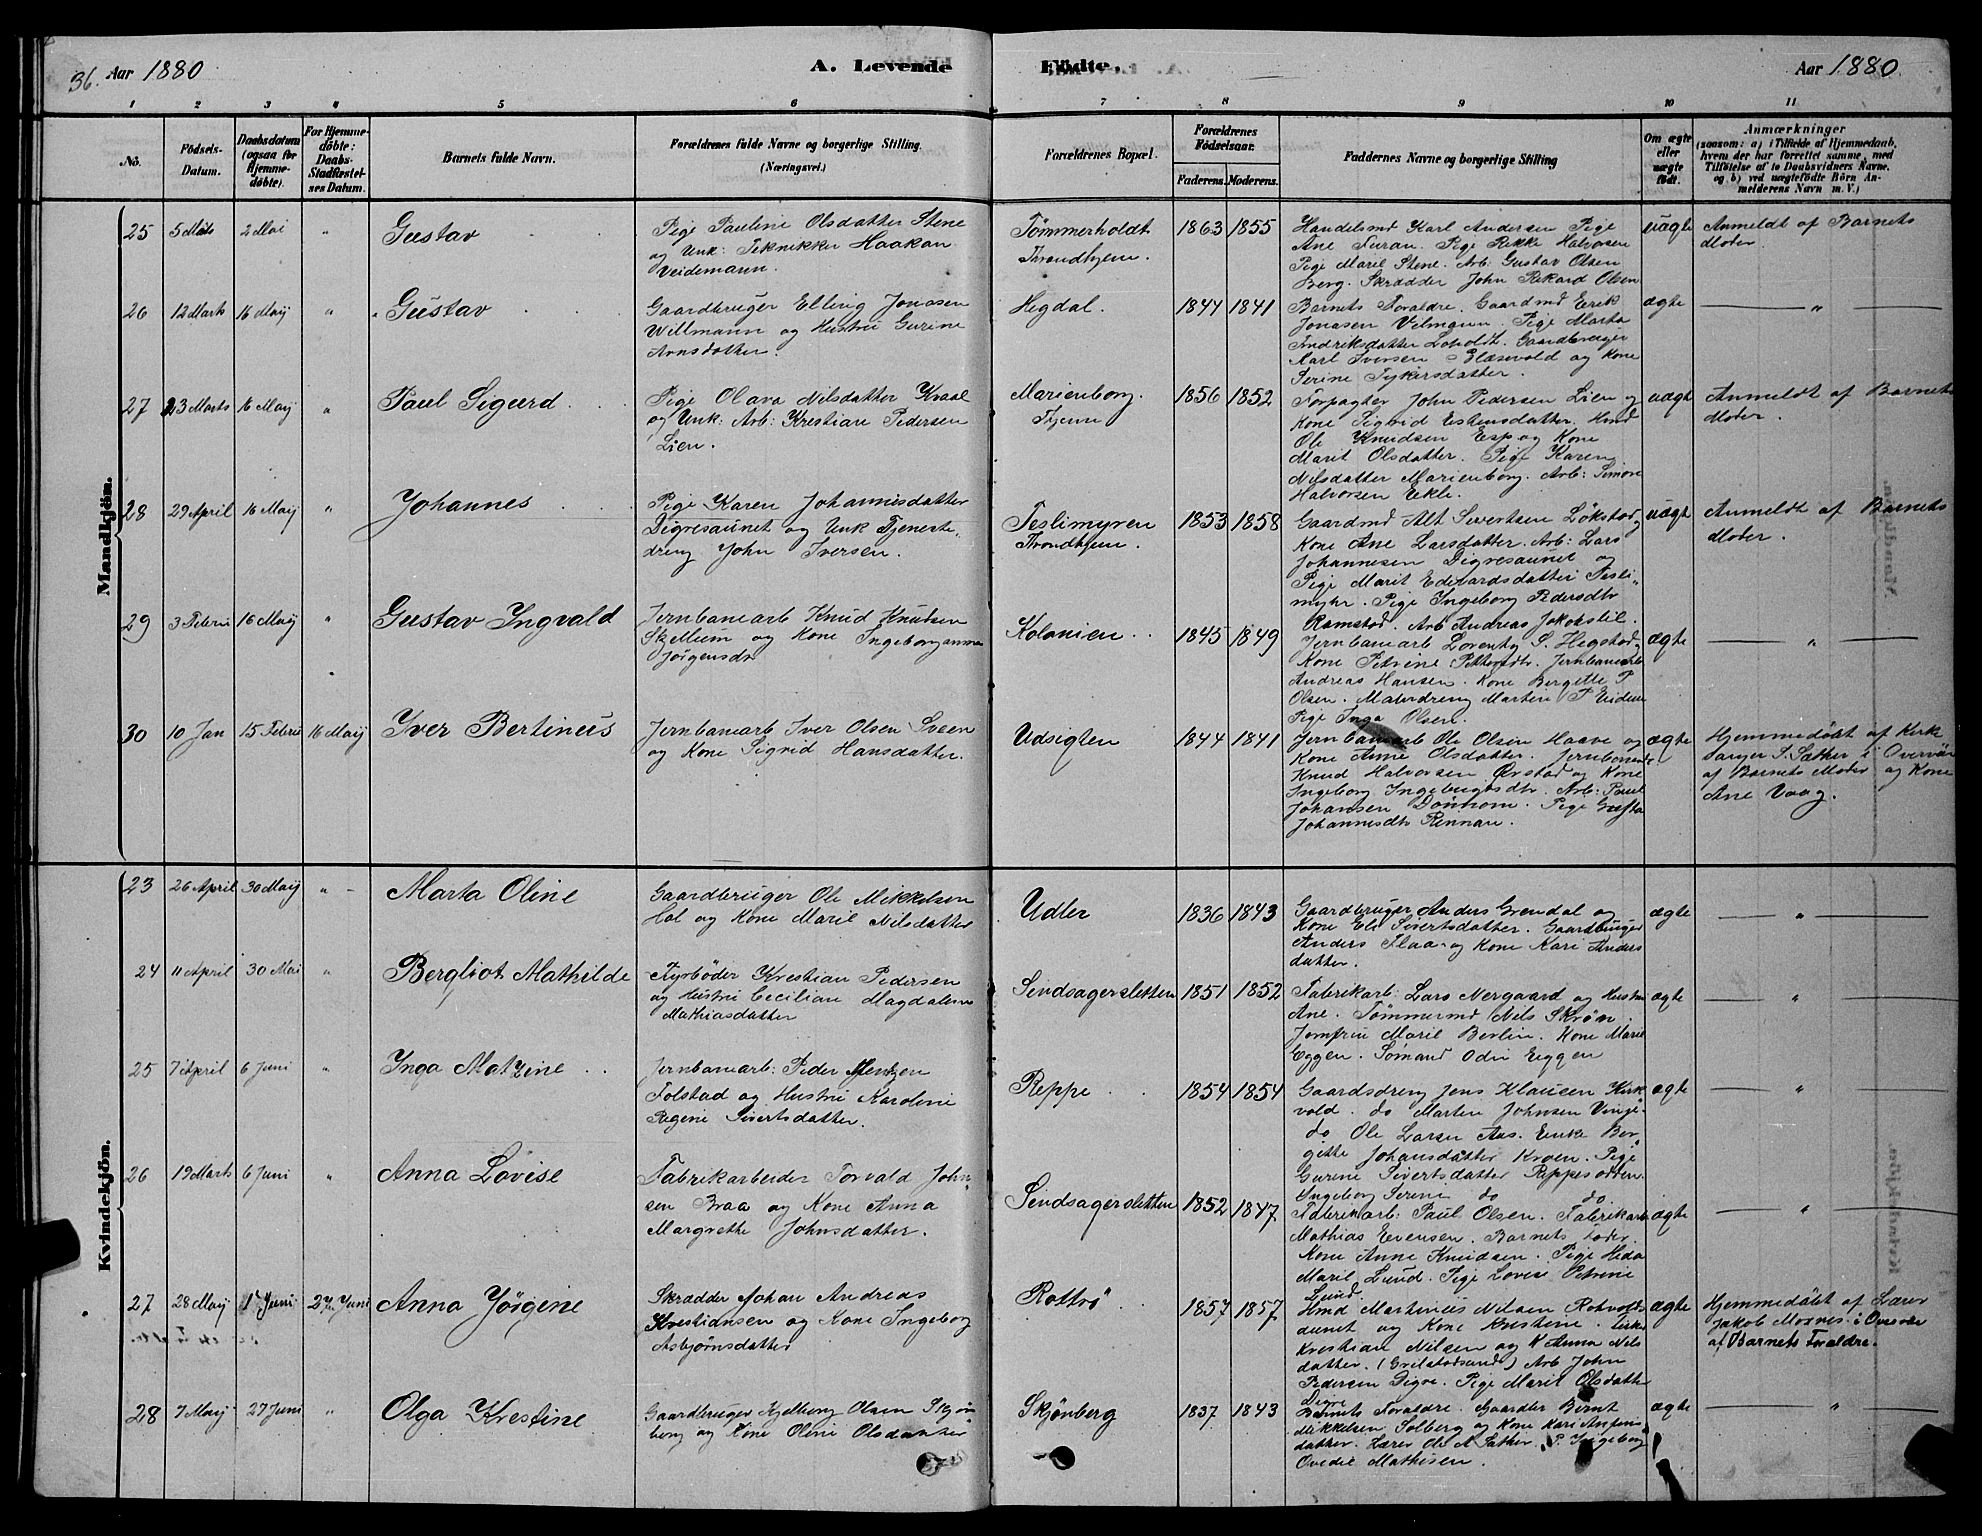 36. Aar 1880
A. Levende
Fødte.
Aar 1880.
1 2 3 4 5 6 7 8 9 10 11
No.
Födsels-
Datum.
Daabsdatum
(ogsaa for
Hjemme-
döbte).
For Hjemme-
döbte:
Daabs-
Stadfæstel-
ses Datum.
Barnets fulde Navn.
Forældrenes fulde Navne og borgerlige Stilling.
(Næringsvei.)
Forældrenes Bopæl.
Forældrenes
Födselsaar.
Faderens. Moderens.
Faddernes Navne og borgerlige Stilling
Om ægte
eller
uægte
født.
Anmærkninger
(saasom: a) i Tilfælde af Hjemmedaab,
hvem der har forrettet samme, med
Tilföielse af to Daabsvidners Navne,
og b) ved uægtefødte Börn An-
melderens Navn m. V.)
Mandkjön.
25 5 Mars 2 Mai " Gustav
Pige Pauline Olsdatter Stene
og Unk: Teknikker Haakon
Veidemann.
Tømmerholdt
Trondhjem.
1863 1855
Handelsmd Karl Andersen Pige
Ane Furan. Pige Rikke Halvorsen
Pige Maril Stene. Arb: Gustav Olsen
Berg. Skrædder John Rikard Olsen
uægte
Anmeldt af Barnets
Moder.
26 12 Marts 16 Maij " Gustav
Gaardbruger Elling Jonasen
Willmann og Hustru Gurine
Arnsdatter.
Hegdal.
1844 1841
Barnets Forældre. Gaardmd Erik
Jonasen Vilmann. Pige Marta
Indriksdatter Loholdt. Gaardbruger
Karl Iversen Blæsevold og Kone
Serine Sykersdatter.
ægte
"
27 23 Marts 16 Maij " Paul Sigurd
Pige Olava Nilsdatter Kraal
og Unk: Arb: Krestian Pedersen
Lien.
Marienborg.
Thjem
1856 1852
Forpagter John Pedersen Lien og
Kone Sigrid Estensdatter. Hmd
Ole Knudsen Esp og Kone
Marit Olsdatter. Pige Karen
Nilsdatter Marienborg. Arb: Simon
Halvorsen Ekle.
uægte
Anmeldt af Barnets
Moder.
28 29 April 16 Maij " Johannes
Pige Karen Johannesdatter
Digresaunet og Unk Tjeneste-
dreng John Iversen.
Teslimyren
Trondhjem.
1853 1858
Gaardmd Alt Sivertsen Lökstad,
Kone Ane Larsdatter. Arb: Lars
Johannesen Digresaunet og
Pige Marit Edevardsdatter Tesli-
myhr. Pige Ingeborg Pedersdtr
Ramstad. Arb Andreas Jakobstil.
uægte
Anmeldt af Barnets
Moder.
29 3 Febru 16 Maij " Gustav Ingvald
Jernbanearb Knud Knutsen
Skjelleim og Kone Ingeborganna
Jørgensdr
Kolonien
1845 1849
Jernbanearb Lorents S. Hegstad,
Kone Petrine Pettersdtr. Jernbanearb
Andreas Hansen. Kone Bergette P
Olsen. Malerdreng Martin P Eidem
Pige Inga Olsen.
ægte
"
30 10 Jan 15 Febru 16 Maij Iver Bertineus
Jernbanearb Iver Olsen Sveen
og Kone Sigrid Hansdatter.
Udsigten
1844 1841
Jernbanearb Ole Olsen Haave og
Kone Anne Olsdatter. Jernbanearb
Knud Halvorsen Ørstad og Kone
Ingeborg Ingebrigtsdtr. Arb: Paul
Johansen Dønnom. Pige Gusta
Johannesdtr Rennan.
ægte
Hjemmedöbt af Kirk
sanger S. Sæther i Overvær
af Barnets Moder og Kone
Ane Vaag.
Kvindekjön.
23 26 April 30 Maij " Marta Oline
Gaardbruger Ole Mikkelsen
Hal og Kone Marie Nilsdatter
Udler
1836 1843
Gaardbruger Anders Grendal og
Kone Eli Sivertsdatter. Gaardbruger
Anders Flaa og Kone Kari Anders
datter.
ægte
"
24 11 April 30 Mai " Bergliot Mathilde
Fyrbøder Krestian Pedersen
og Hustru Cecilian Magdalene
Mathiasdatter
Sindsagersletten
1851 1852
Fabrikarb: Lars Nergaard og Hustru
Ane. Tømmermd Nils Skrøm.
Jomfru Maril Berlin. Kone Marie
Eggen. Sømand Odin Eggen
ægte
"
25 7 April 6 Juni " Inga Matzine
Jernbanearb: Peder Mentzen
Folstad og Hustru Karoline
Regine Sivertsdatter.
Reppe
1854 1854
Gaardsdreng Jens Klausen Kirk
vold. do Martin Johnsen Vinge-
do Ole Larsen Aas. Enke Ber
gitte Johansdatter Kroen. Pige
Gurine Sivertsdatter Reppesodden.
Ingeborg Serine do do
ægte
"
26 19 Marts 6 Juni " Anna Lovise
Fabrikarbeider Torvald John
sen Braa og Kone Anna
Margrethe Johnsdatter.
Sindsagersletten
1852 1847
Fabrikarb: Paul Olsen. Fabrikarb
Mathias Evensen. Barnets Fader.
Kone Anne Knudsen. Pige Hida
Maril Lund. Pige Lovise Petrine
Lund.
ægte
"
27 28 Maij 1 Juni 27 Juni Anna Jörgine
Skrædder Johan Andreas
Krestiansen og Kone Ingeborg
Asbjørnsdatter
Rottrö
1857 1857
Hmd Martinus Nilsen Rotvolds
aunet og Kone Kristine.
Krestian Nilsen og K Anna Nils
datter. (Grilstadsund) Arb John
Pedersen Digre. Pige Marit Olsdatter
Digre
ægte
Hjemmedöbt af Lærer
Jakob Moxnes i Overvær
af Barnets Forældre.
28 7 Maij 27 Juni " Olga Krestine
Gaardbruger Kjelberg Olsen Skjøn
berg og Kone Oline Olsdatter
Skjønberg
1837 1843
Barnets Forældre. Gaardbr Bernt
Mikkelsen Solberg og Kone Kari Antons
datter. Lærer Ole A Sæther. P. Ingeborg
Ovedie Mathisen.
ægte
"